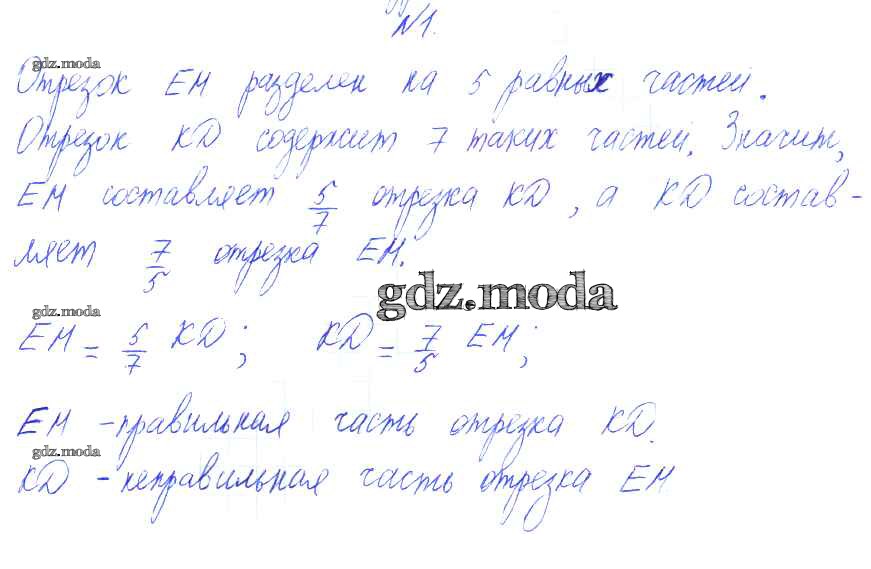 №1.
gdz.moda
Отрезок ЕМ разделен на 5 равных частей.
Отрезок KD содержит 7 таких частей. Значит,
ЕМ составляет 5/7 отрезка KD, а KD состав-
ляет 7/5 отрезка ЕМ.
gdz.moda
gdz.moda
ЕМ = 5/7 KD; KD = 7/5 ЕМ;
ЕМ - правильная часть отрезка KD.
gdz.moda
KD - неправильная часть отрезка ЕМ